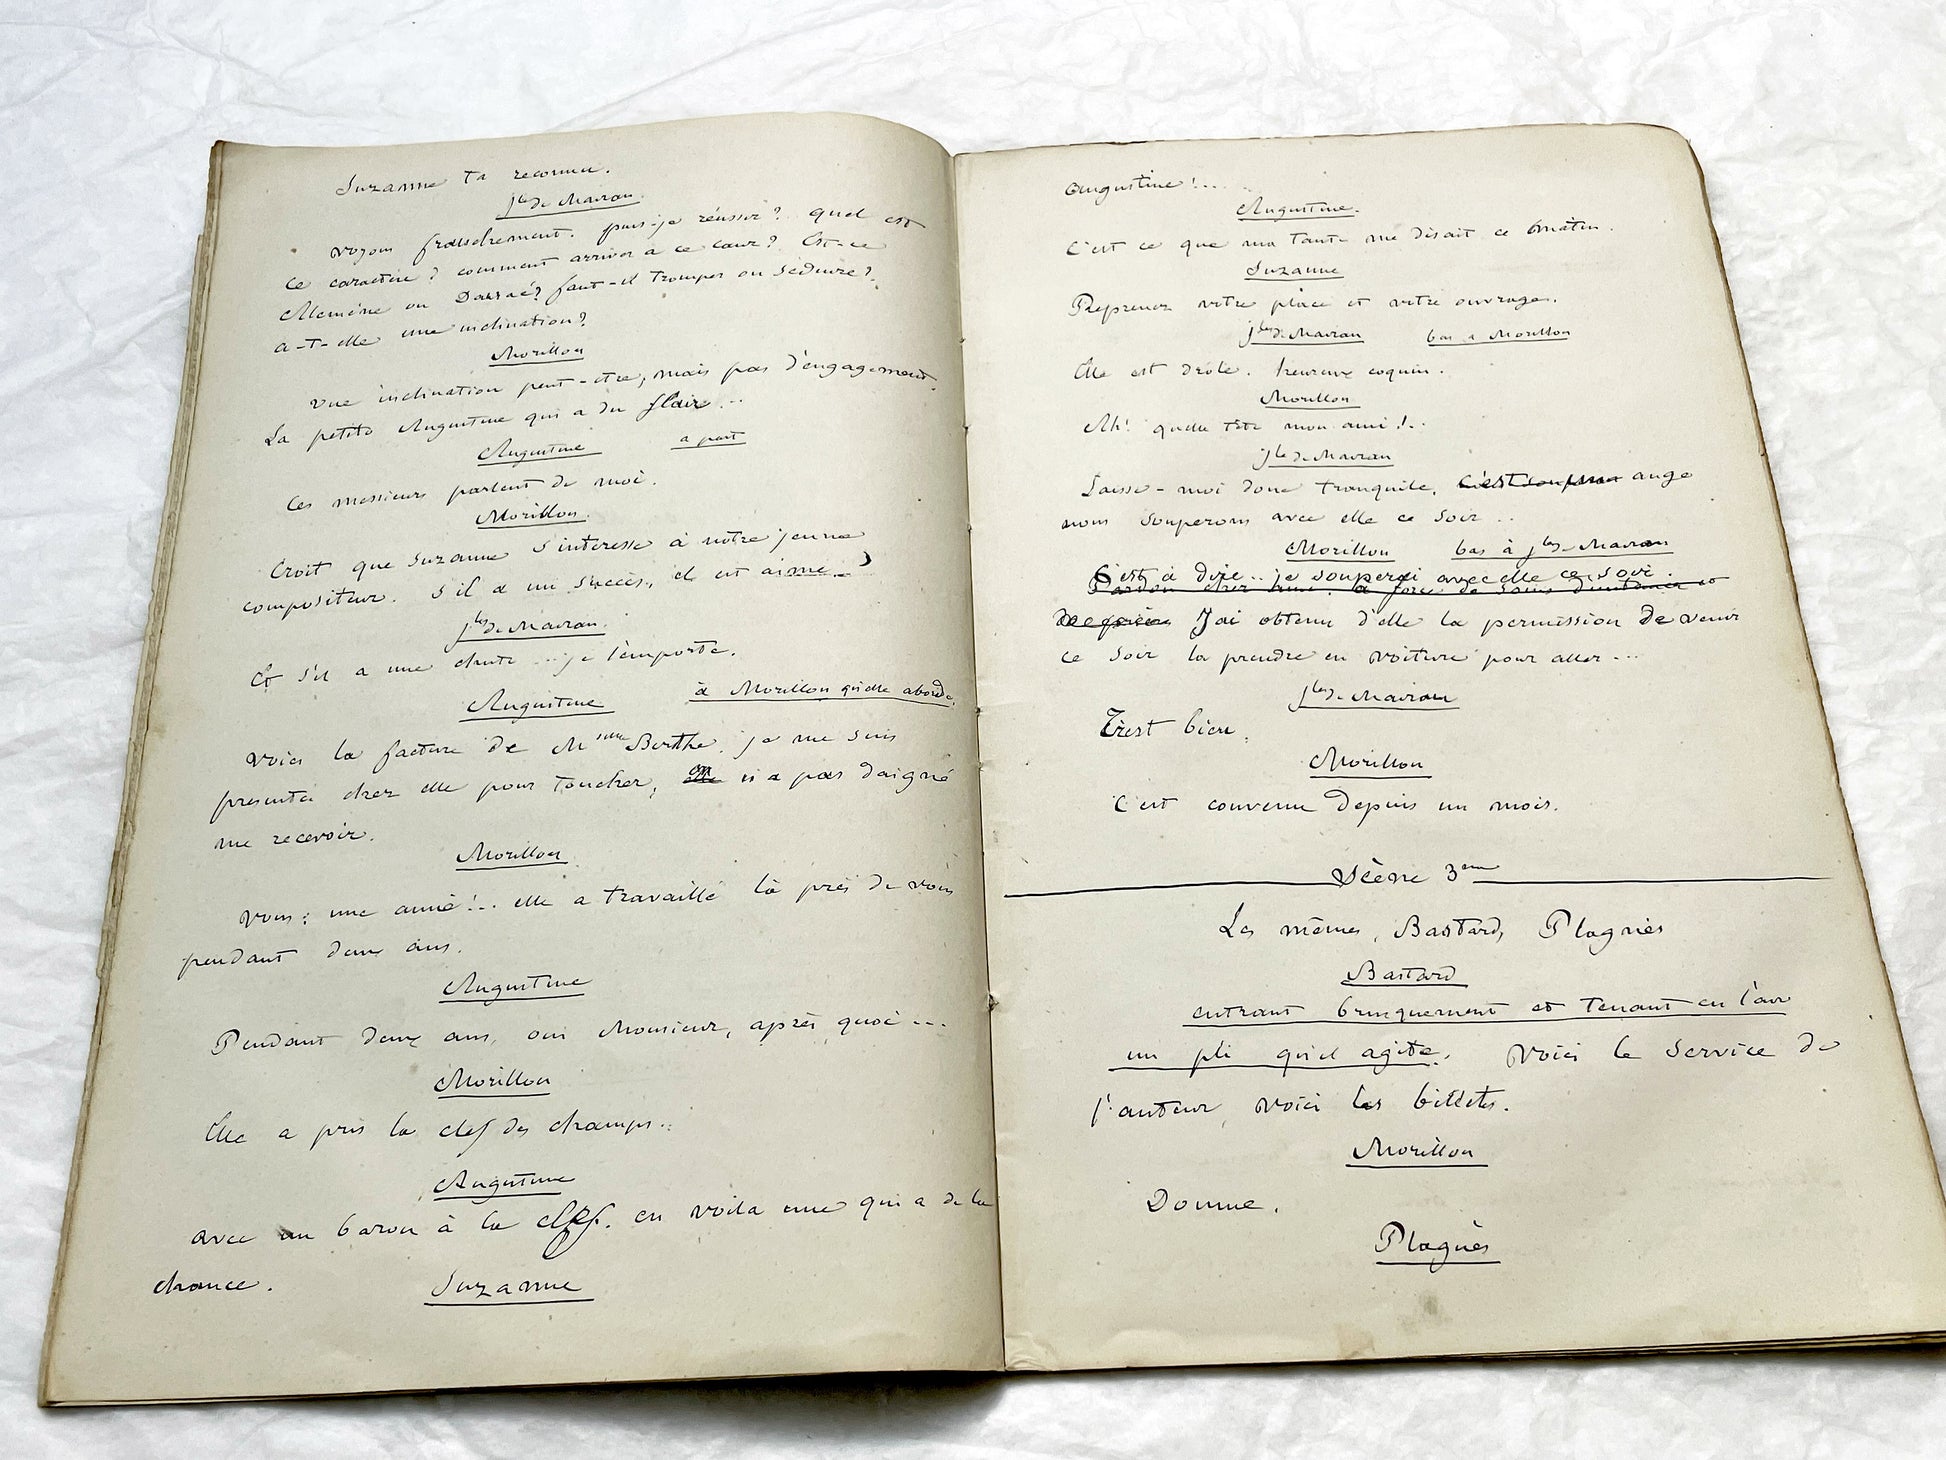 Suzanne t'a reconnu.
Jles de Mairan.
Voyons franchement. puis-je réussir? quel est
ce caractère? comment arriver à ce cœur? Est-ce
Alcmène ou Danaé? faut-il tromper ou séduire?
a-t-elle une inclination?
Morillon
Une inclination peut-etre, mais pas d'engagement.
La petite Augustine qui a du flair...
Augustine a part
Ces messieurs parlent de moi.
Morillon.
Croit que Suzanne s'interesse à notre jeune
compositeur. S'il a un succès, il est aimé.
Jles de Mairan.
Et s'il a une chute ... je l'emporte.
Augustine à Morillon qu'elle aborde.
Voici la facture de Berthe. je me suis
presentée chez elle pour toucher, on n'a pas daigné
me recevoir.
Morillon
Vous: une amie!.. elle a travaillé là près de vous
pendant deux ans.
Augustine
Pendant deux ans, oui Monsieur, après quoi ...
Morillon
Elle a pris la clef des champs..
Augustine
Avec un baron à la clef. en voila une qui a de la
chance.
Suzanne
Augustine!...
Augustine.
C'est ce que ma tante me disait ce matin.
Suzanne
Reprenez votre place et votre ouvrage.
Jles de Mairan bas a Morillon
Elle est drôle. heureux coquin.
Morillon
Ah! quelle tête mon ami!..
Jles de Mairan
Laisse-moi donc tranquile. ange
nous souperons avec elle ce soir ..
Morillon bas à Jles de Mairan
C'est à dire.. je souperai avec elle ce soir.
Pardon cher ami. à force de soins
J'ai obtenu d'elle la permission de venir
ce soir la prendre en voiture pour aller ...
Jles de Mairan
Très bien.
Morillon
C'est convenu depuis un mois.
Scène 3em
Les mêmes, Bastard, Plagnès
Bastard
entrant brusquement et tenant en l'air
un pli qu'il agite. Voici le service de
l'auteur, voici les billets.
Morillon
Donne.
Plagnès